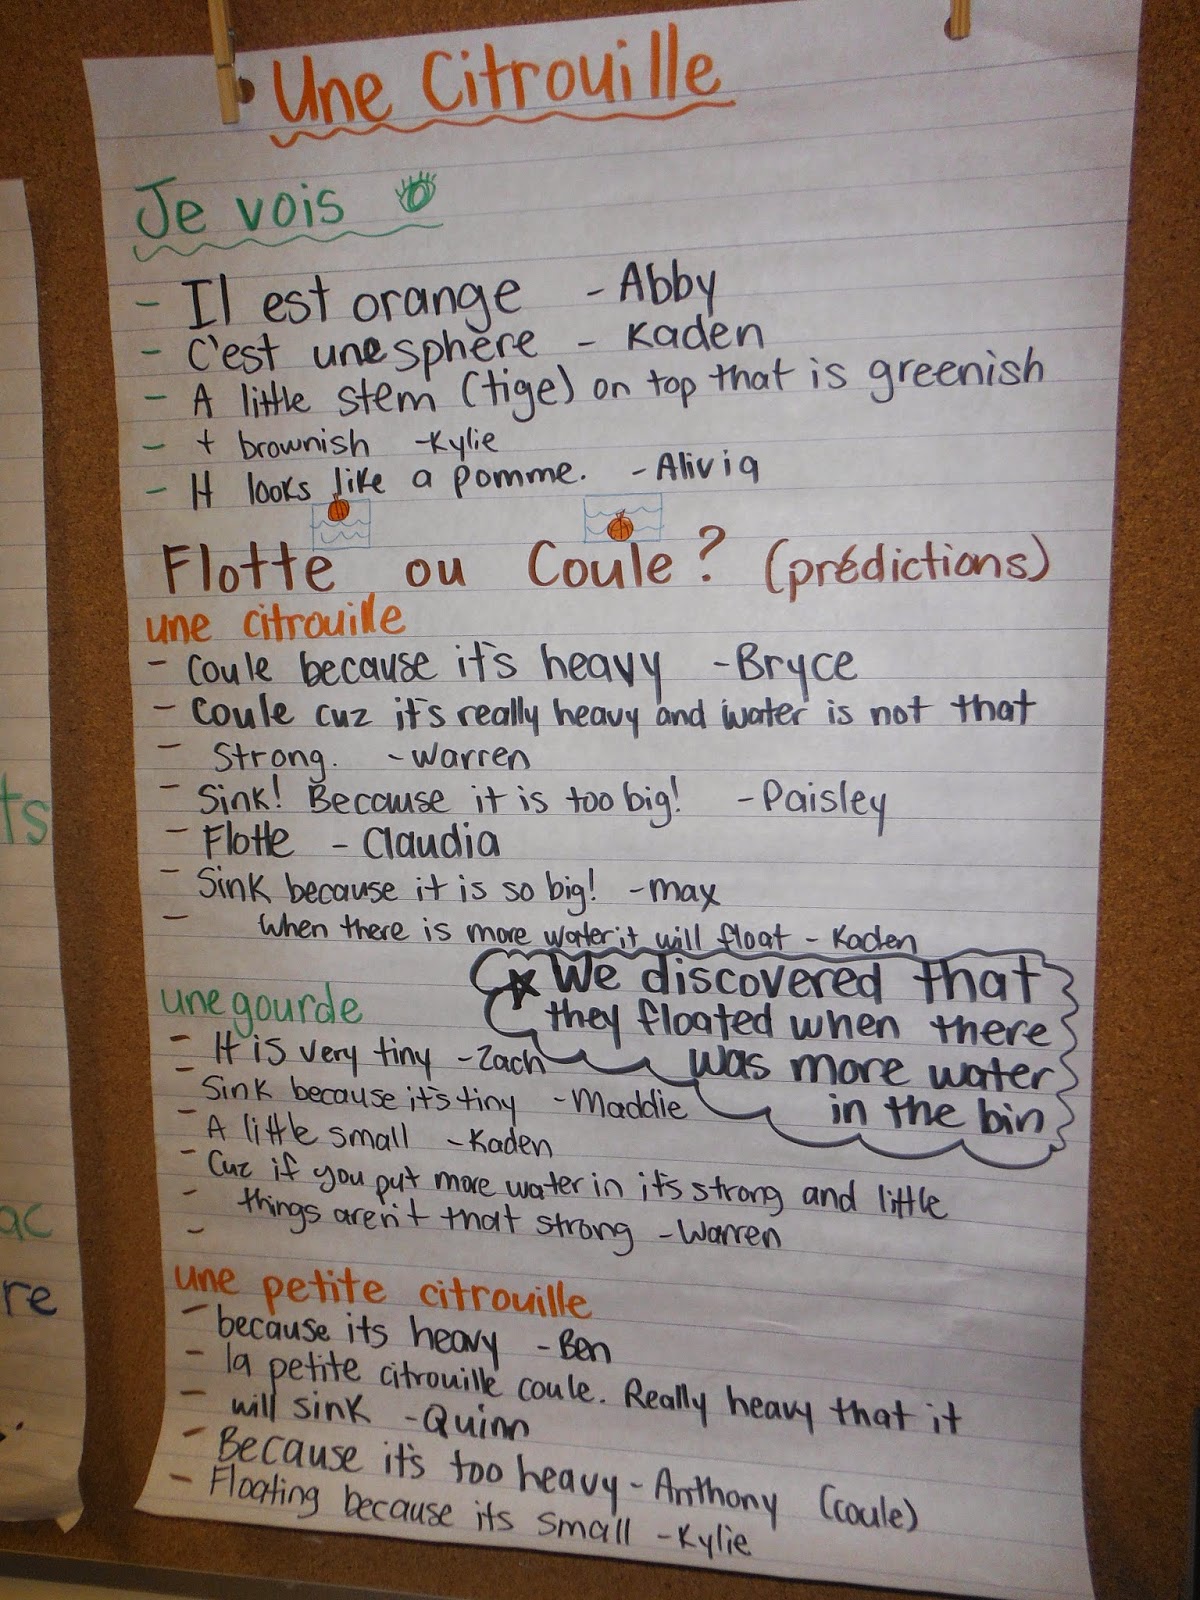 Une Citrouille
Je vois
- Il est orange - Abby
- C'est une sphère - Kaden
- A little stem (tige) on top that is greenish
- + brownish - Kylie
- It looks like a pomme. - Alivia
Flotte ou Coule? (prédictions)
une citrouille
- Coule because it's heavy - Bryce
- Coule cuz it's really heavy and water is not that
- Strong. - Warren
- Sink! Because it is too big! - Paisley
- Flotte - Claudia
- Sink because it is so big! - Max
- When there is more water it will float - Kaden
We discovered that
they floated when there
was more water
in the bin
une gourde
- It is very tiny - Zach
- Sink because it's tiny - Maddie
- A little small - Kaden
- Cuz if you put more water in it's strong and little
- things aren't that strong - Warren
-
une petite citrouille
- because its heavy - Ben
- la petite citrouille coule. Really heavy that it
- will sink - Quinn
- Because it's too heavy - Anthony (coule)
- Floating because its small - Kylie
ts
ac
re